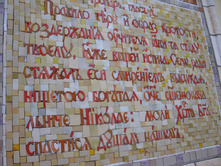 Правило вѣры и образъ кротости
воздержанїѧ ᲂучителѧ ꙗви тѧ стаду
твоемꙋ, ꙗже вещей истина: сегѡ ради
стѧжалъ еси смиренїемъ высокаѧ,
нищетою богатаѧ, отче сщ҃еннона
чальниче Нїколае: моли Хрⷭ҇та Бг҃а
спастисѧ душамъ нашымъ.